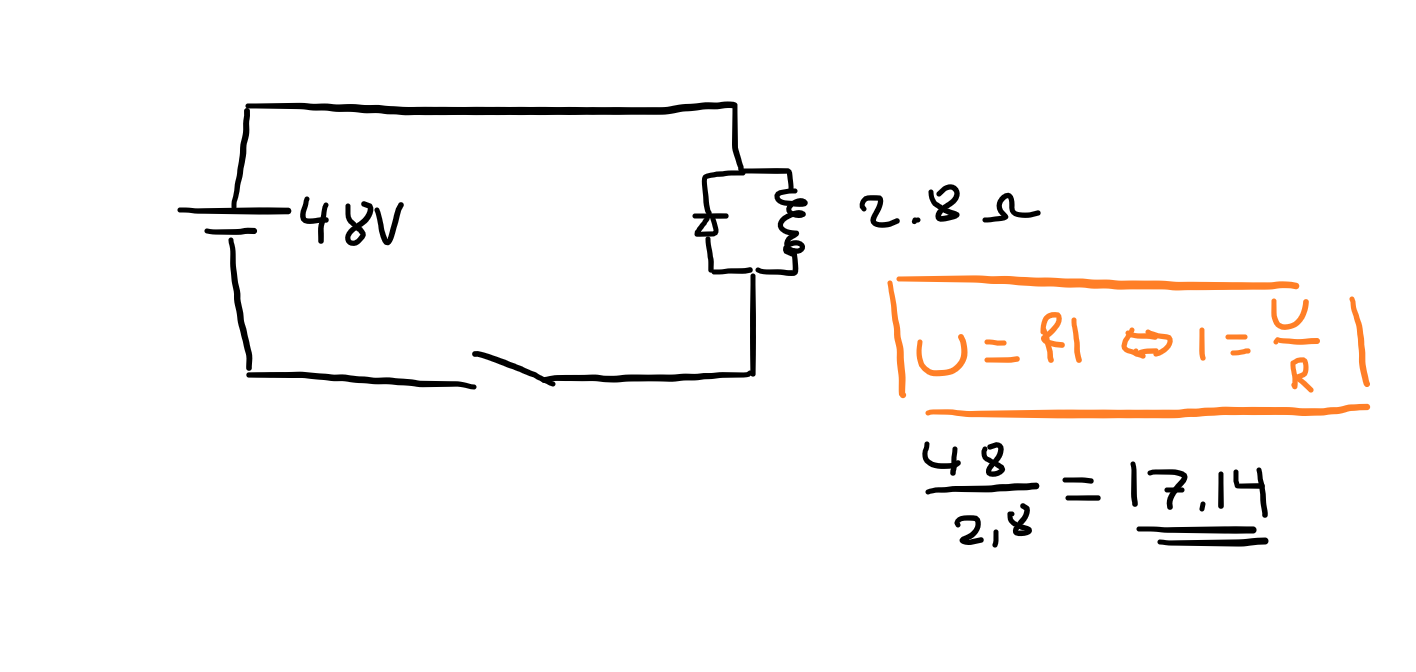 48V
2.8 Ω
U = RI ⇔ I = U/R
48/2,8 = 17.14